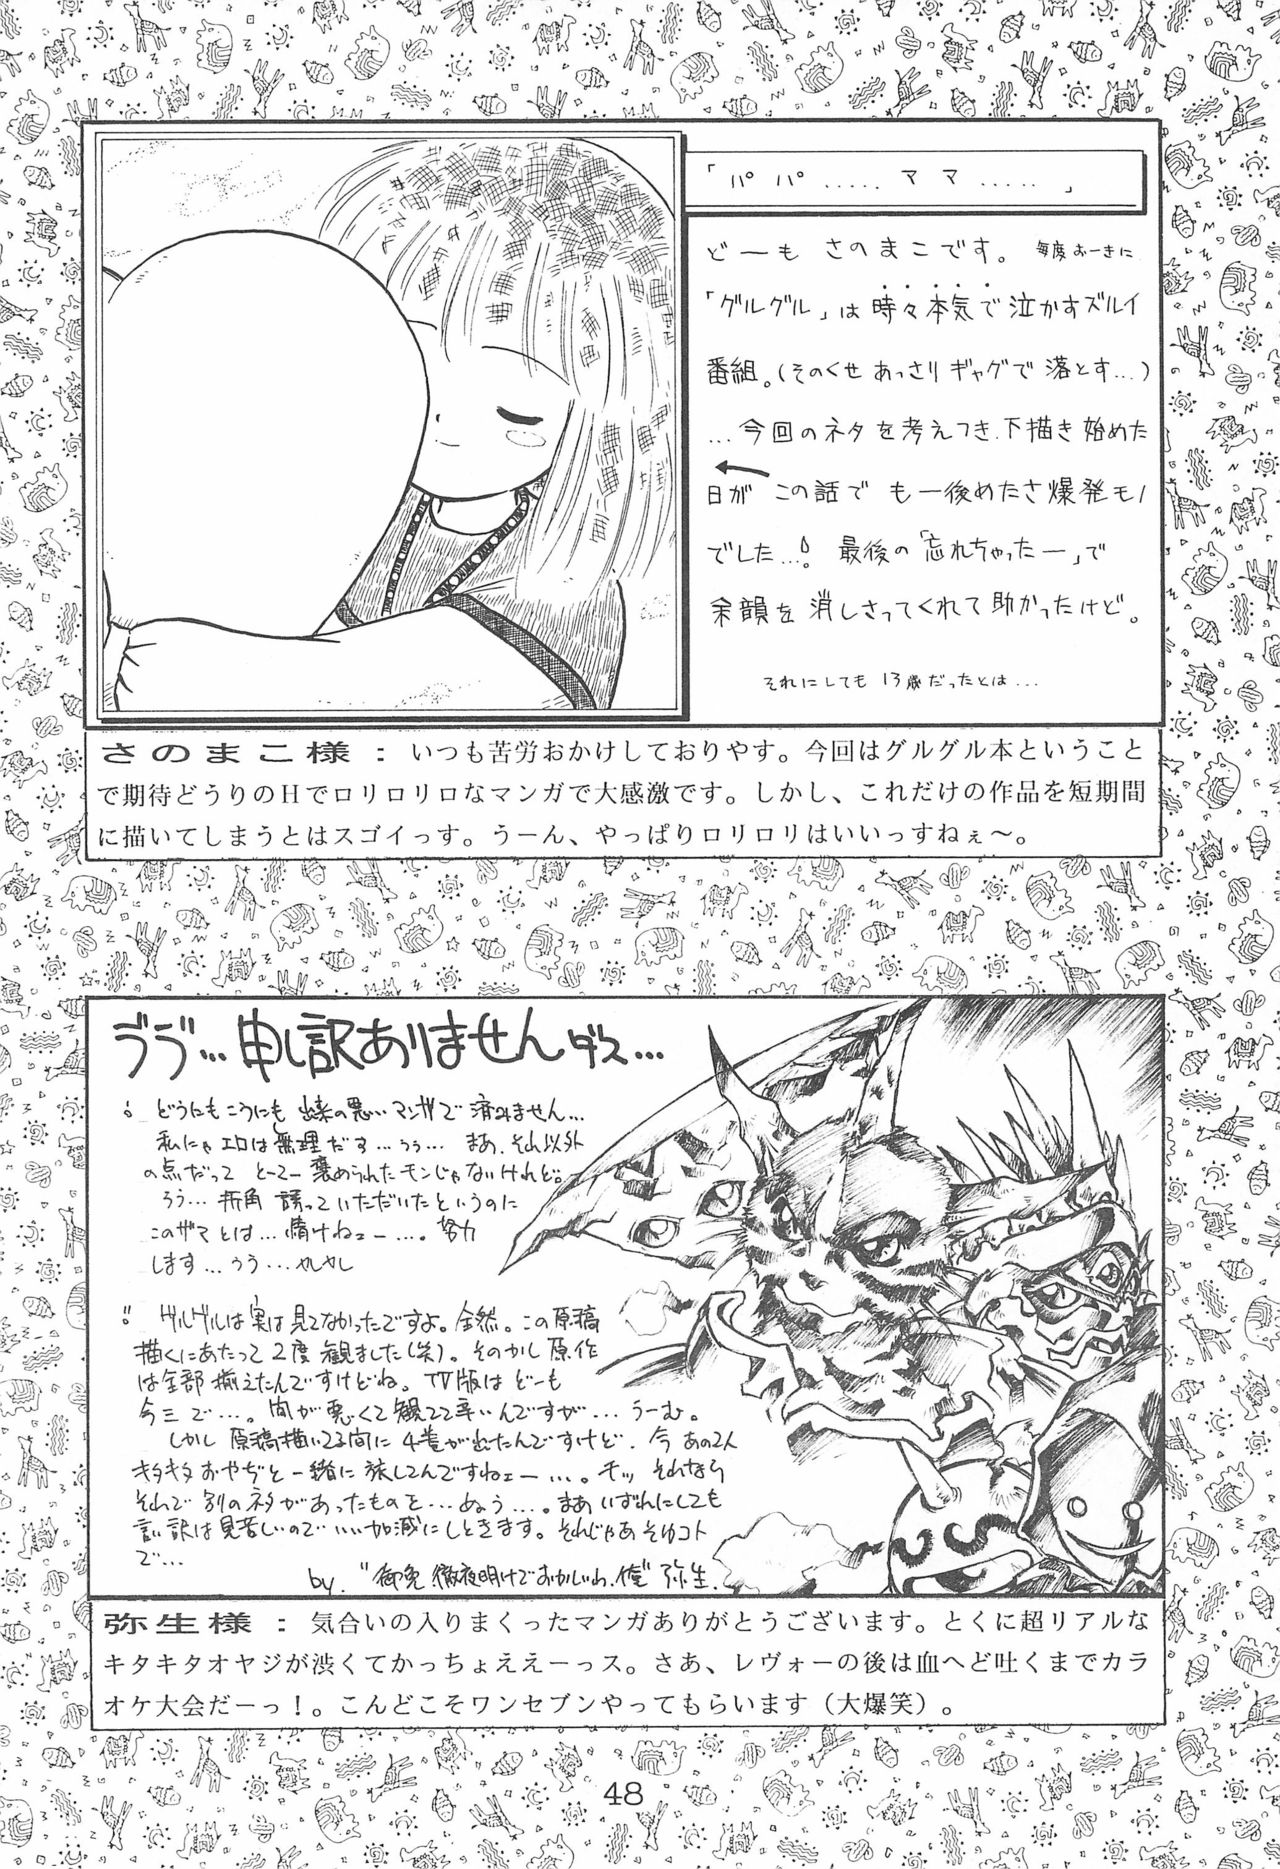 「パパ.....ママ.....」
どーも さのまこです。 毎度おーきに
「グルグル」は時々本気で泣かすズルイ
番組。(そのくせ あっさり ギャグで 落とす...)
...今回のネタを考えつき、下描き始めた
日が この話で も一後めたさ爆発モノ
でした...! 最後の「忘れちゃったー」で
余韻を 消しさってくれて助かったけど。
それにしても 13歳だったとは...
さのまこ様：いつも苦労おかけしておりやす。今回はグルグル本ということ
で期待どうりのＨでロリロリロなマンガで大感激です。しかし、これだけの作品を短期間
に描いてしまうとはスゴイっす。うーん、やっぱりロリロリはいいっすねぇ～。
ラヴ...申し訳ありませんダス...
どうにもこうにも 出来の悪いマンガで 済みません...
私にゃ エロは無理だす...うぅ... まあ、それ以外
の点だって とーてー褒められたモンじゃないけれど。
うう... 折角 誘っていただいたというのに
このザマとは...情けねェー...。努力
します...うう...
グルグルは実は見てなかったですよ。全然。この原稿
描くにあたって 2度 観ました(笑)。そのかし 原作
は全部 揃えたんですけどね。TV版は どーも
今三で...。間が悪くて観てて辛いんですが...うーむ。
しかし 原稿描いてる間に 4巻がでたんですけど、今 あの2人
キタキタおやぢと一緒に 旅してんですねェー...。チッ それなら
それで 別のネタがあったものを...。まあいずれにしても
言い訳は見苦しいので いい加減にしときます。それじゃあ そゆコト
で...
by. "御免 徹夜明けでおかしいわ、俺" 弥生.
弥生様：気合いの入りまくったマンガありがとうございます。とくに超リアルな
キタキタオヤジが渋くてかっちょええーっス。さあ、レヴォーの後は血へど吐くまでカラ
オケ大会だーっ！。こんどこそワンセブンやってもらいます（大爆笑）。
48